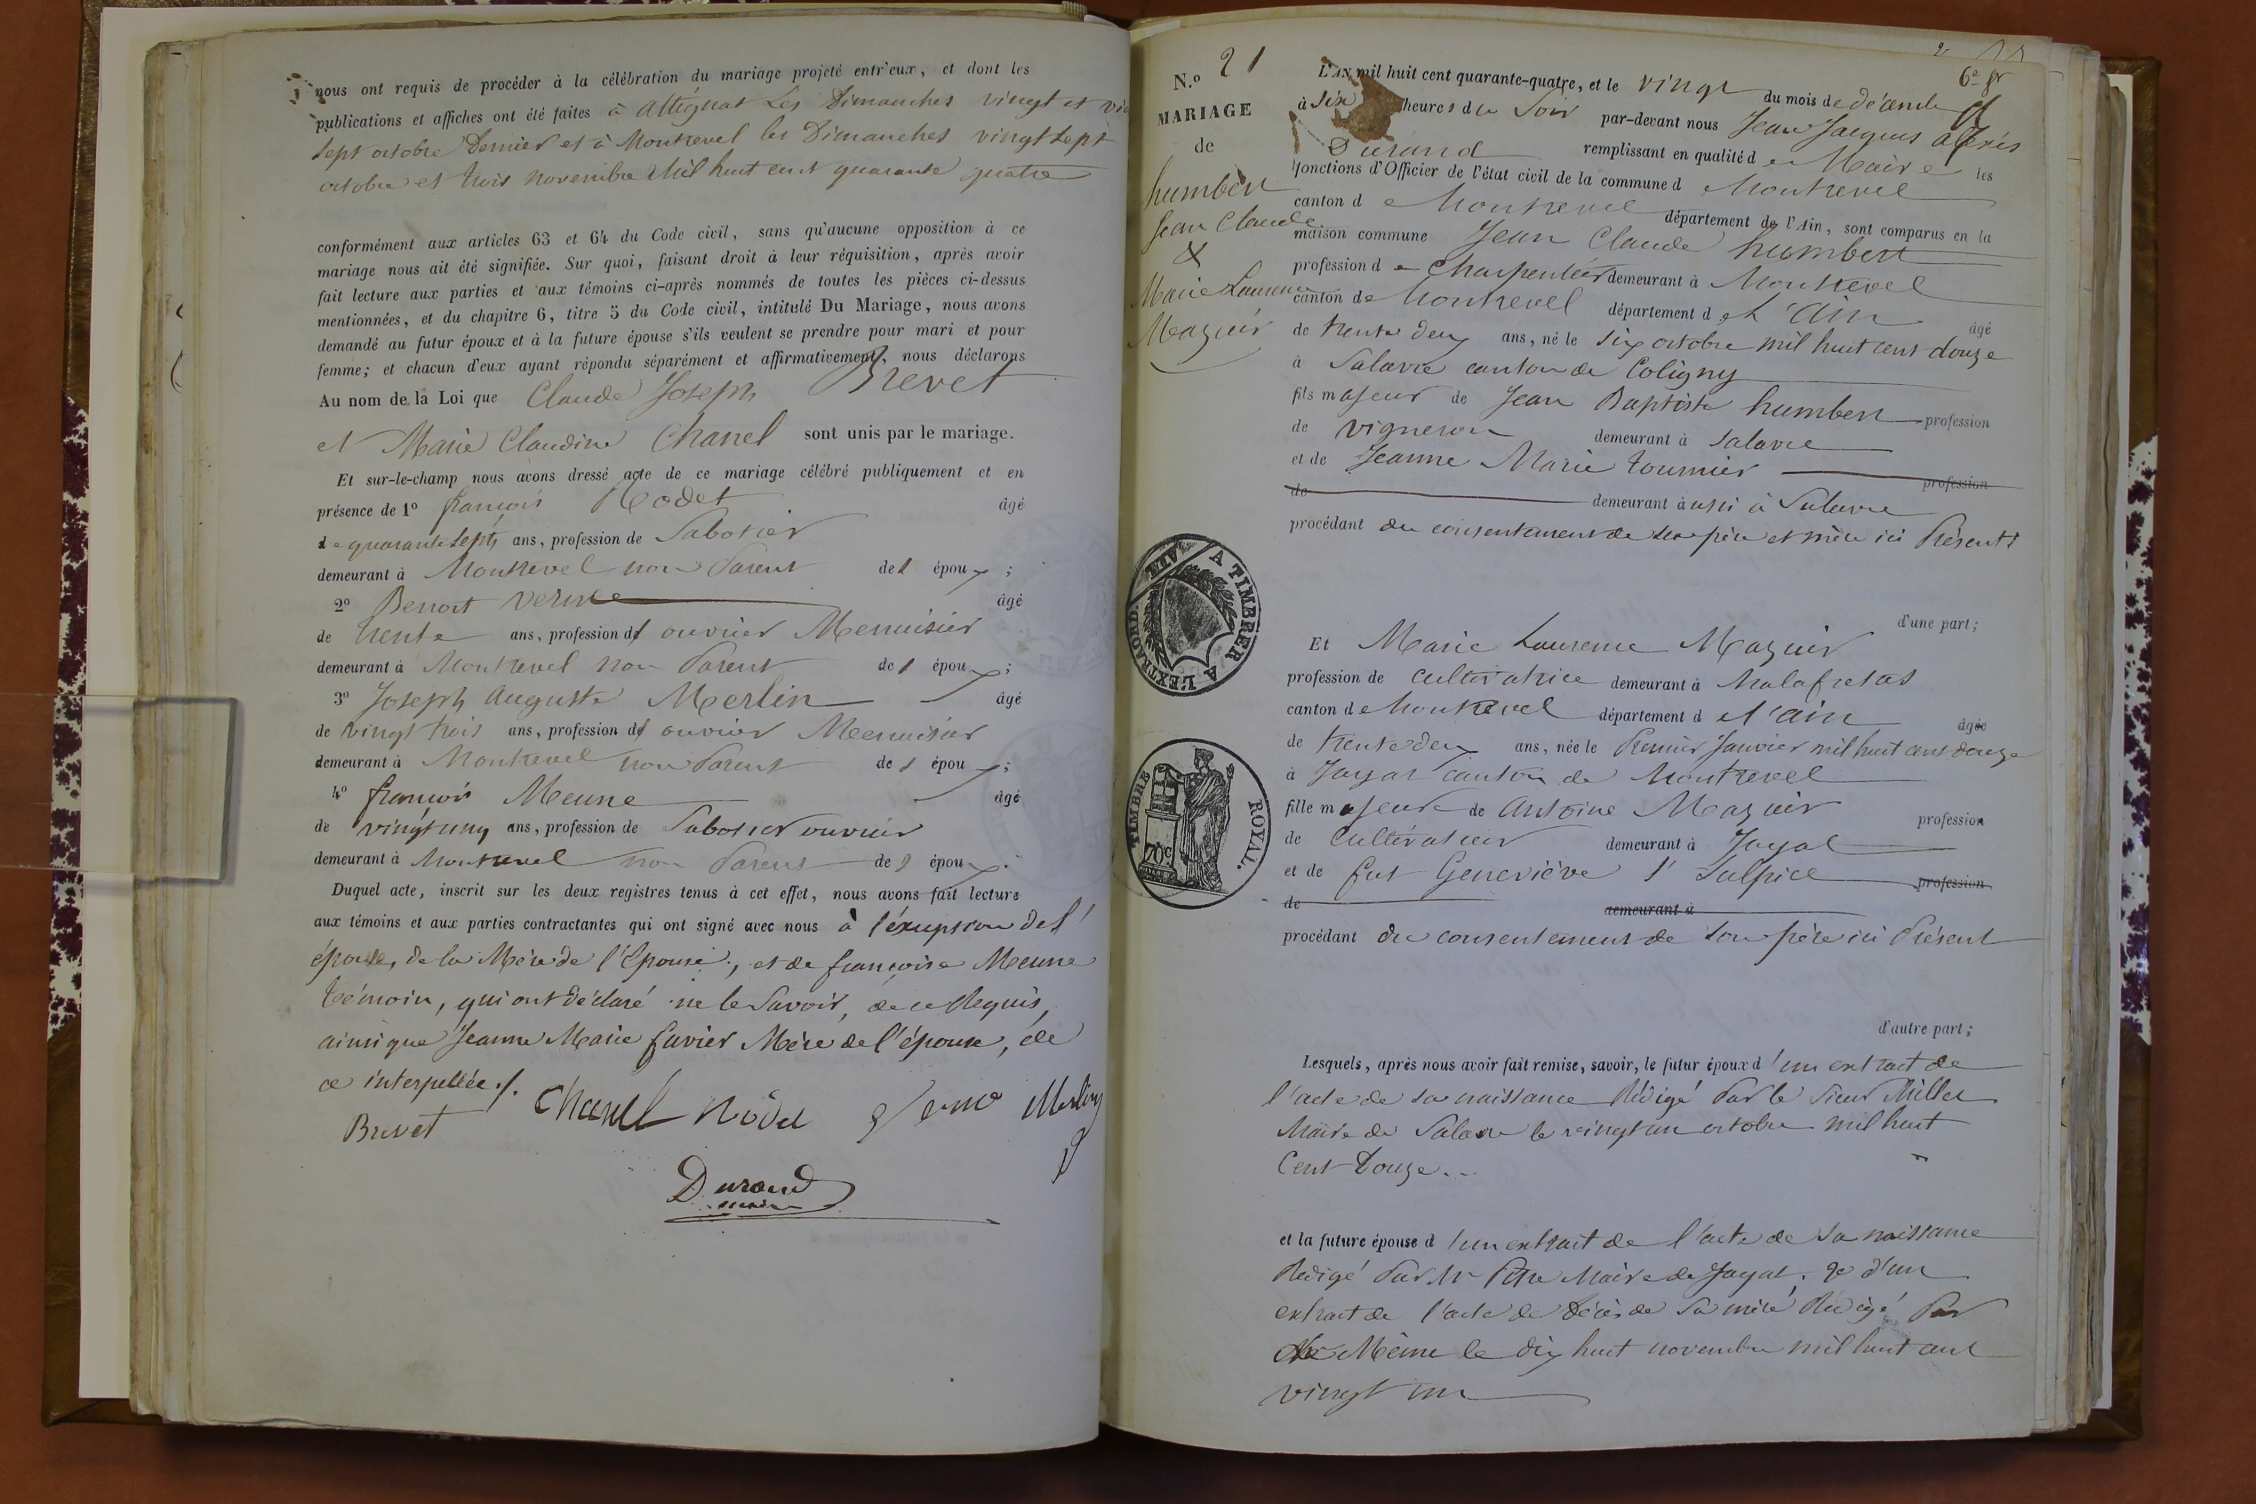 nous ont requis de procéder à la célébration du mariage projeté entr'eux, et dont les
publications et affiches ont été faites à attignat Les Dimanches vingt et
sept octobre Dernier et à Montrevel les Dimanches vingt sept
octobre et trois novembre Mil huit cent quarante quatre
conformément aux articles 63 et 64 du Code civil, sans qu'aucune opposition à ce
mariage nous ait été signifiée. Sur quoi, faisant droit à leur réquisition, après avoir
fait lecture aux parties et aux témoins ci-après nommés de toutes les pièces ci-dessus
mentionnées, et du chapitre 6, titre 5 du Code civil, intitulé Du Mariage, nous avons
demandé au futur époux et à la future épouse s'ils veulent se prendre pour mari et pour
femme; et chacun d'eux ayant répondu séparément et affirmativement, nous déclarons
Au nom de la Loi que Claude Joseph Brevet
et Marie Claudine Chanel sont unis par le mariage.
Et sur-le-champ nous avons dressé acte de ce mariage célébré publiquement et en
présence de 1º françois Rodet âgé
de quarante sept ans, profession de Sabotier
demeurant à Montrevel non Parent de l époux;
2º Benoit verne âgé
de trente ans, profession d ouvrier Menuisier
demeurant à Montrevel non Parent de l époux;
3º Joseph auguste Merlin âgé
de vingt trois ans, profession d ouvrier Menuisier
demeurant à Montrevel non Parent de l époux;
4º françois Meune âgé
de vingt un ans, profession de Sabotier ouvrier
demeurant à Montrevel non Parent de l époux.
Duquel acte, inscrit sur les deux registres tenus à cet effet, nous avons fait lecture
aux témoins et aux parties contractantes qui ont signé avec nous à l'exception del'
épouse, de la Mère de l'Epouse, et de françoise Meune
témoin, qui ont déclaré ne le Savoir, de ce Requis,
ainsi que Jeanne Marie favier Mère de l'épouse, de
ce interpellée ./.
Brevet Chanel Merlin
Durand
maire
N.º 21
MARIAGE
de
humbert
Jean Claude
&
Marie Laurence
Mazuir
6e
L'AN mil huit cent quarante-quatre, et le vingt du mois de décembre
à six heures du Soir par-devant nous Jean Jacques alexis
Durand remplissant en qualité de Maire les
fonctions d'Officier de l'état civil de la commune de Montrevel
canton de Montrevel département de l'Ain, sont comparus en la
maison commune Jean Claude humbert
profession de Charpentier demeurant à Montrevel
canton de Montrevel département de l'ain âgé
de trente deux ans, né le six octobre mil huit cent douze
à Salavre canton de Coligny
fils majeur de Jean Baptiste humbert profession
de vigneron demeurant à Salavre
et de Jeanne Marie tournier profession
de demeurant à aussi à Salavre
procédant du consentement de ses père et mère ici Présents
d'une part;
Et Marie Laurence Mazuir
profession de cultivatrice demeurant à Malafretas
canton de Montrevel département de l'ain âgée
de trente deux ans, née le Premier Janvier mil huit cent douze
à Jayat canton de Montrevel
fille majeure de Antoine Mazuir profession
de Cultivateur demeurant à Jayat
et de fut Geneviève St Sulpice profession
de demeurant à
procédant du consentement de son père ici Présent
d'autre part;
Lesquels, après nous avoir fait remise, savoir, le futur époux d'un extrait de
l'acte de sa naissance Rédigé Par le Sieur Millet
Maire de Salavre le vingt un octobre mil huit
Cent Douze
et la future épouse d'un extrait de l'acte de sa naissance
Rédigé Par Mr Maire de Jayat. 2º d'un
extrait de l'acte de Décès de Sa mère Rédigé Par
le Même le dix huit novembre mil huit cent
vingt un
A TIMBRER A L'EXTRAORD. AIN
TIMBRE ROYAL.
70c